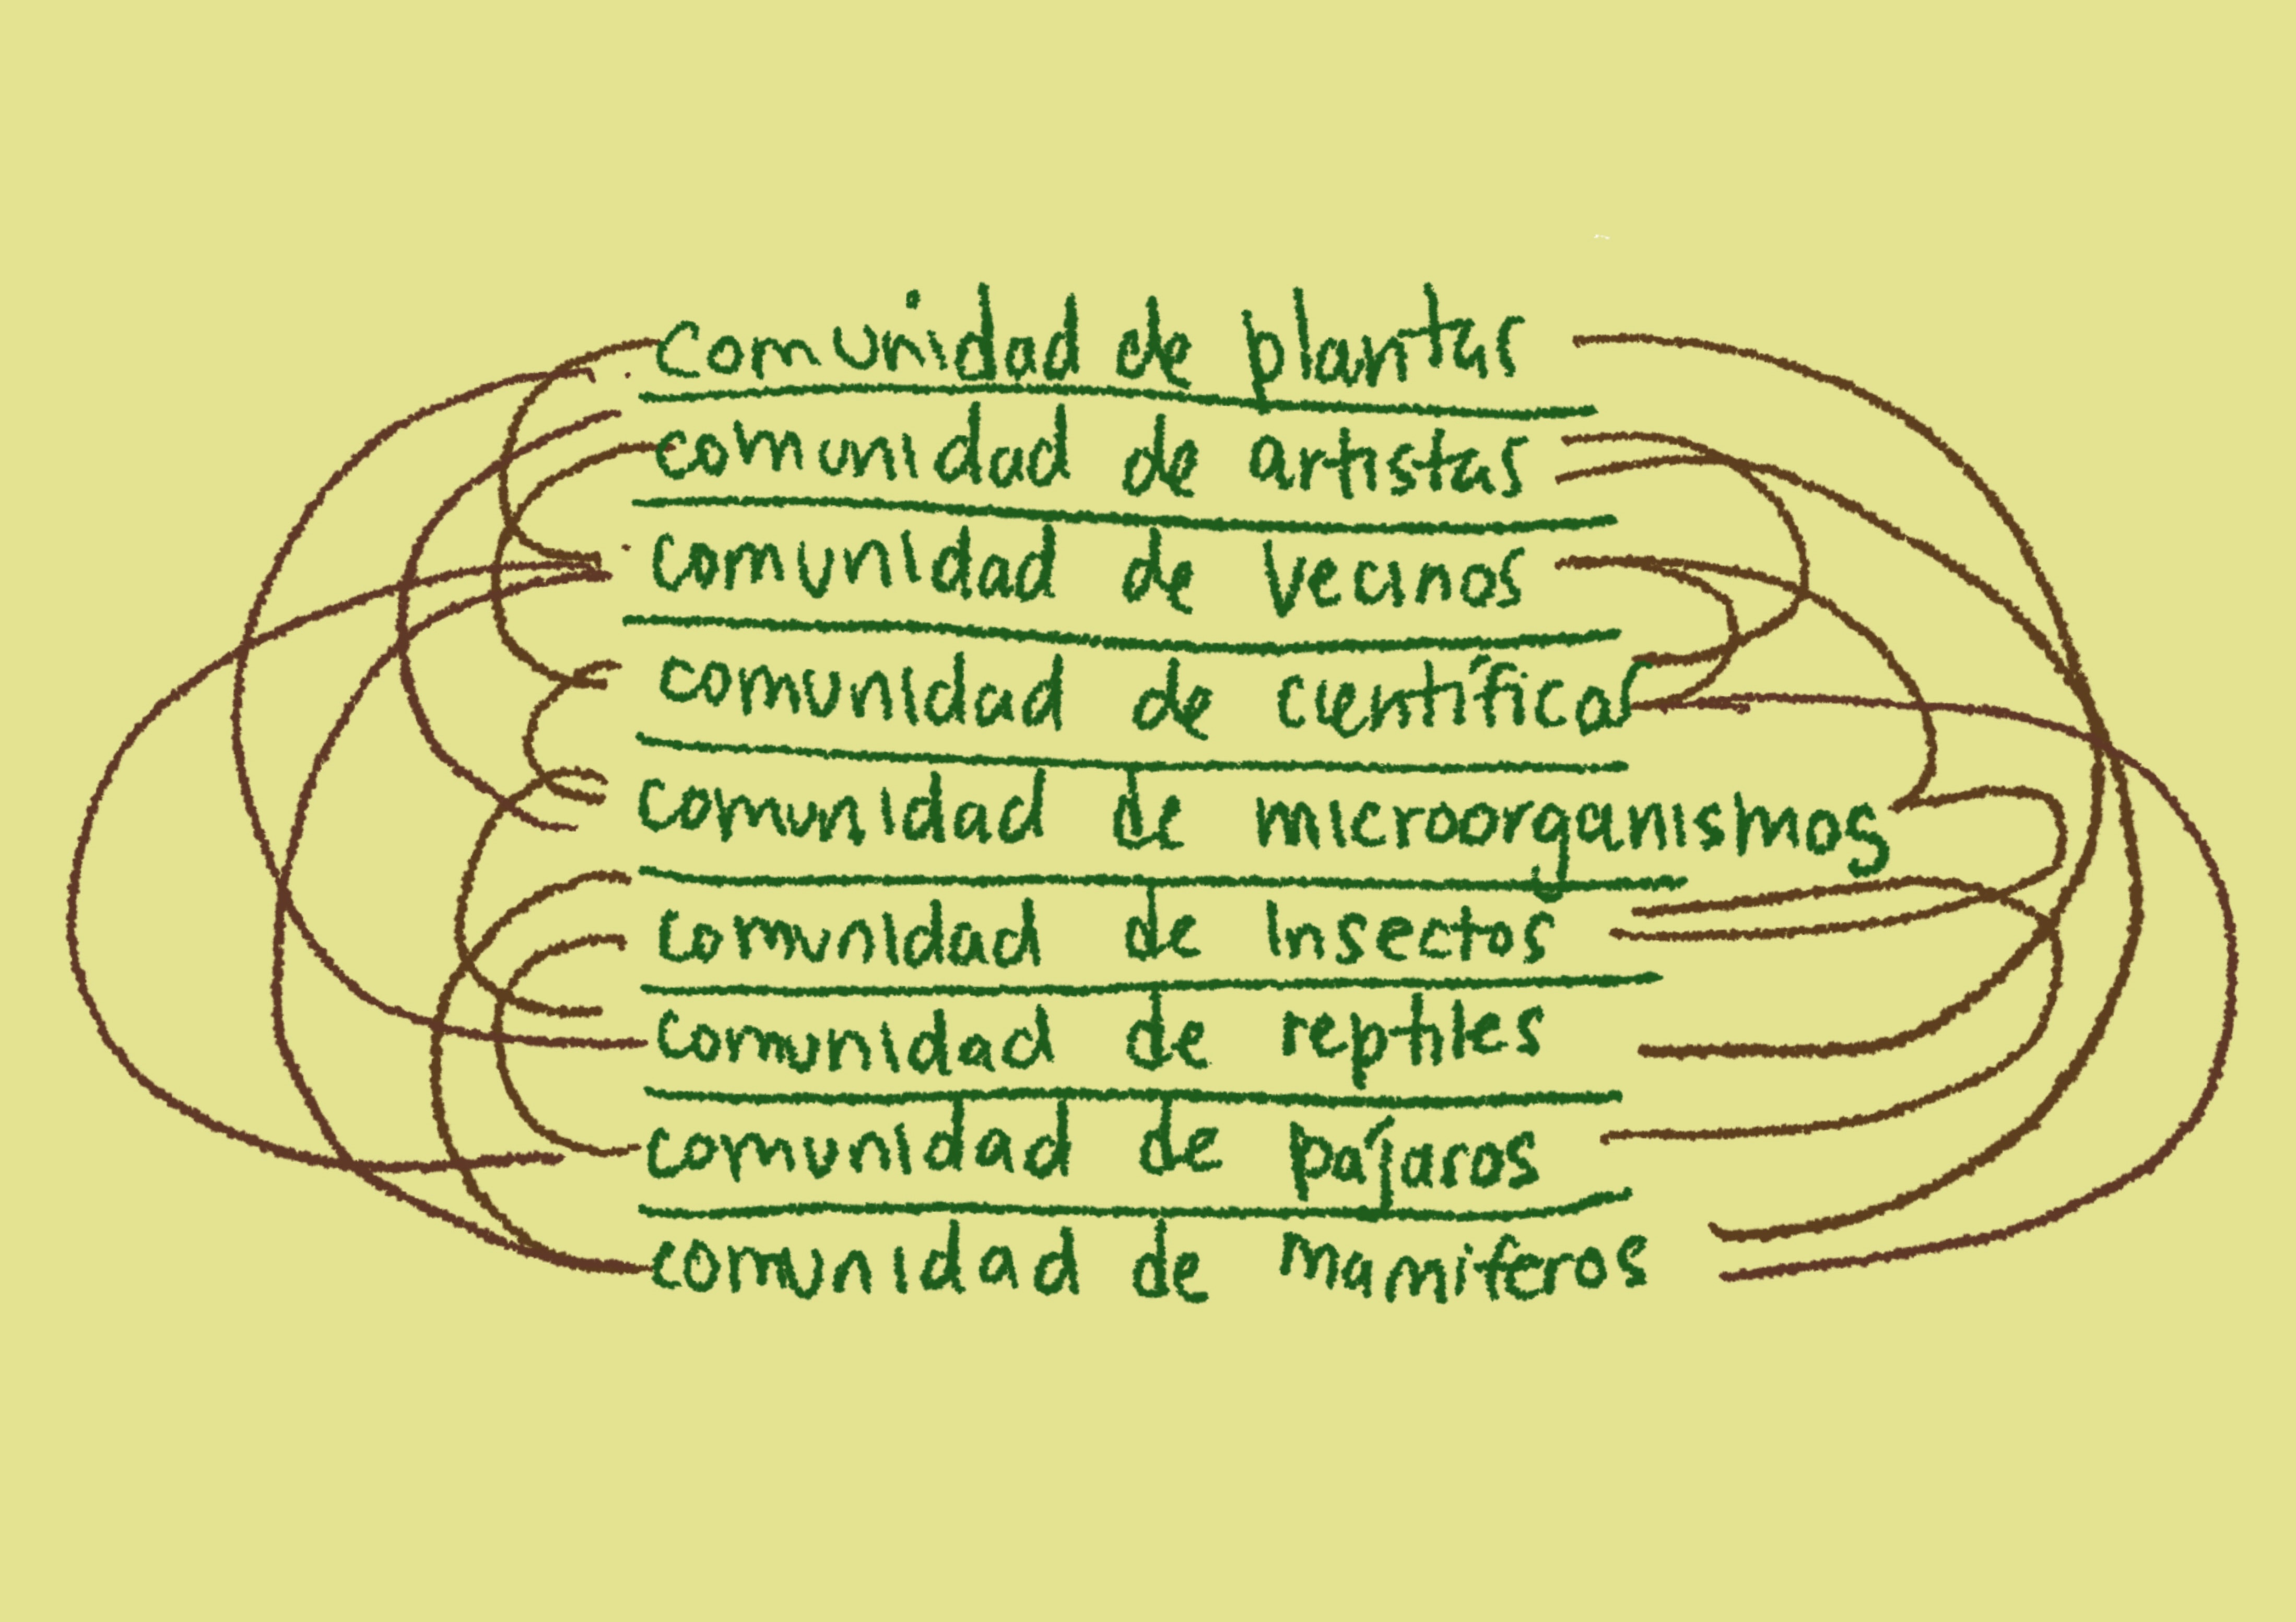 comunidad de plantas
comunidad de artistas
comunidad de vecinos
comunidad de científicas
comunidad de microorganismos
comunidad de insectos
comunidad de reptiles
comunidad de pájaros
comunidad de mamíferos